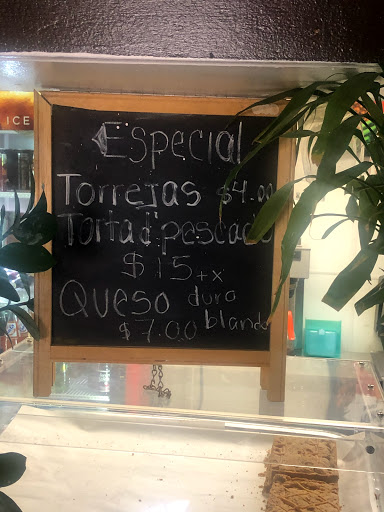 ICE
Especial
Torrejas $4.00
Torta d' pescado
$15+x
Queso duro
$7.00 blando